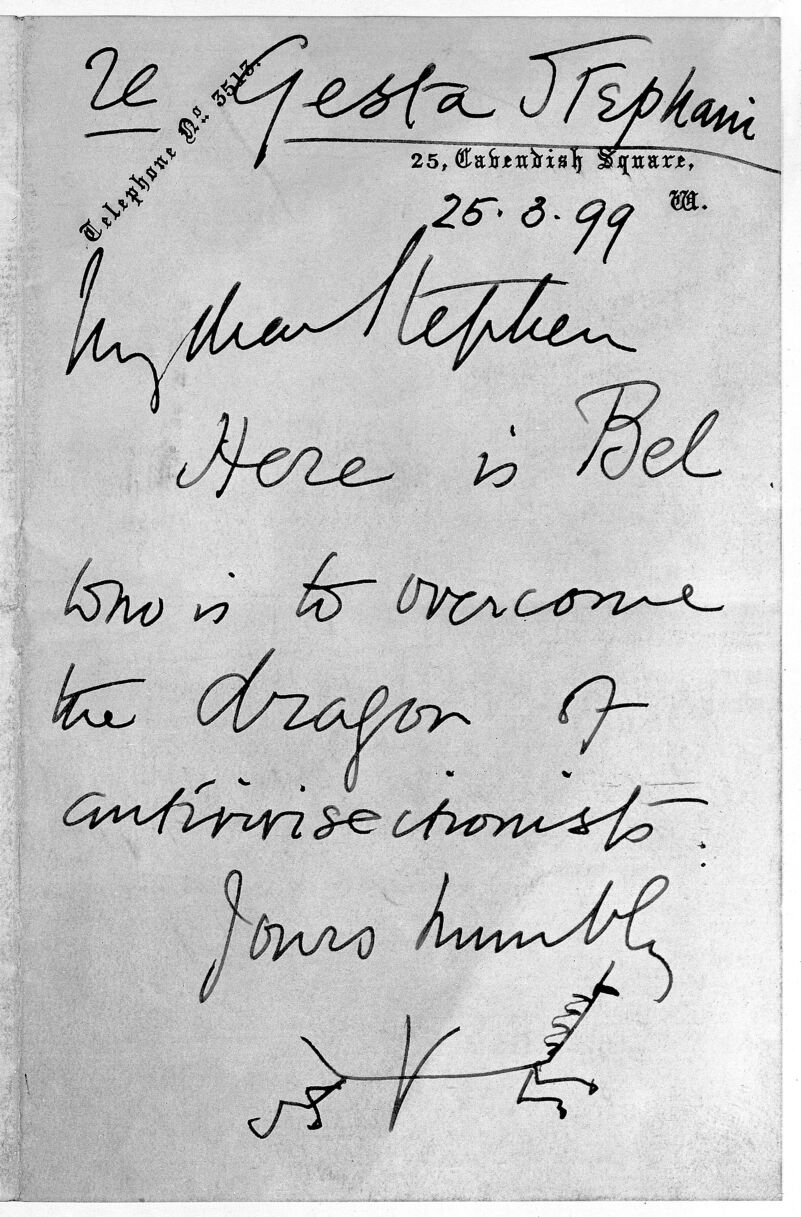 re Gesta Stephani
Telephone No. 3513.
25, Cavendish Square,
W.
25.3.99
My dear Stephen
Here is Bel
who is to overcome
the dragon of
antivivisectionists.
Yours humbly